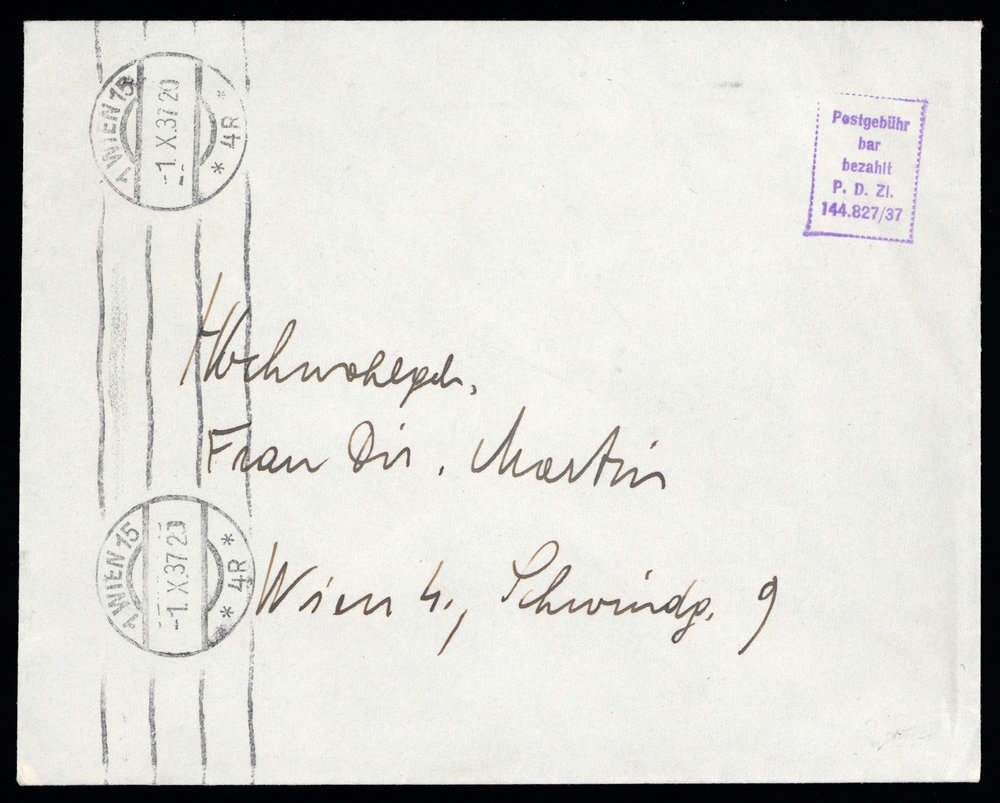 1 WIEN 15
-1.X.37 20
* 4R *
Postgebühr
bar
bezahlt
P. D. Zl.
144.827/37
Hochwohlgeb.
Frau Dir. Martin
1 WIEN 15
-1.X.37 20
* 4R *
Wien 4., Schwindg. 9